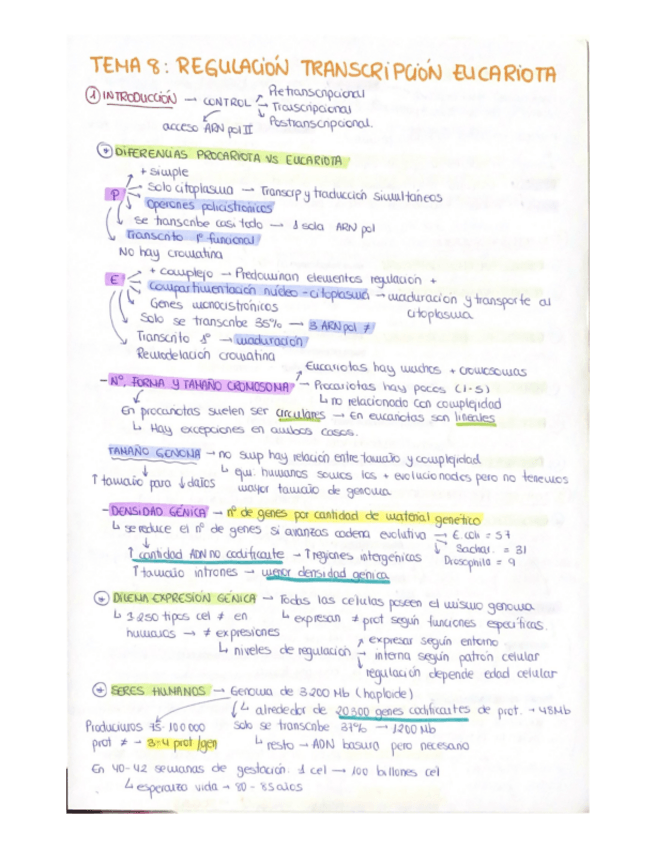 TEMA 8: REGULACIÓN TRANSCRIPCIÓN EUCARIOTA
① INTRODUCCIÓN → CONTROL → Pretranscripcional
→ Transcripcional
→ Postranscripcional.
acceso ARN pol II
* DIFERENCIAS PROCARIOTA VS EUCARIOTA
+ simple
P → Solo citoplasma → Transcrip y traducción simultáneas
Operones policistrónicos
Se transcribe casi todo → 1 sola ARN pol
Transcrito 1º funcional
No hay cromatina
E → + complejo → Predominan elementos regulación +
Compartimentación núcleo-citoplasma → maduración y transporte al citoplasma
Genes monocistrónicos
Solo se transcribe 35% → 3 ARN pol ≠
Transcrito 1º → maduración
Remodelación cromatina
Eucariotas hay muchos + cromosomas
- Nº, FORMA Y TAMAÑO CROMOSOMA → Procariotas hay pocos (1-5)
↳ no relacionado con complejidad
En procariotas suelen ser circulares → En eucariotas son lineales
↳ Hay excepciones en ambos casos.
TAMAÑO GENOMA → no sup hay relación entre tamaño y complejidad
↑ tamaño para ↓ daños
↳ quí. humanos somos los + evolucionados pero no tenemos
mayor tamaño de genoma
- DENSIDAD GÉNICA → nº de genes por cantidad de material genético
↳ se reduce el nº de genes si avanzas cadena evolutiva → E. coli = 57
Sachar. = 31
Drosophila = 9
↑ cantidad ADN no codificante → ↑ regiones intergénicas
↑ tamaño intrones → menor densidad génica
* DILEMA EXPRESIÓN GÉNICA → Todas las celulas poseen el mismo genoma
↳ 3·250 tipos cel ≠ en
humanos → ≠ expresiones
↳ expresan ≠ prot según funciones específicas.
↳ niveles de regulación → expresar según entorno
→ interna según patrón celular
regulación depende edad celular
* SERES HUMANOS → Genoma de 3200 Mb (haploide)
↳ alrededor de 20500 genes codificantes de prot. → 48Mb
Producimos 75-100 000
prot ≠ → 3-4 prot/gen
Solo se transcribe 37% → 1200 Mb
↳ resto → ADN basura pero necesario
En 40-42 semanas de gestación. 1 cel → 100 billones cel
↳ esperanza vida → 80-85 años